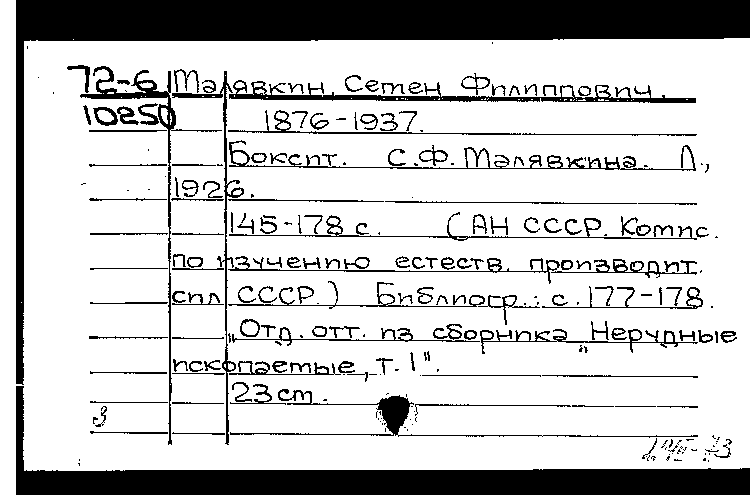 72-6 Малявкин, Семен Филиппович.
10250 1876-1937.
Боксит. С.Ф. Малявкина. Л.,
1926.
145-178 с. (АН СССР. Комис.
по изучению естеств. производит.
сил СССР.) Библиогр.: с. 177-178.
„Отд. отт. из сборника „Нерудные
ископаемые, т. 1".
23 см.
3